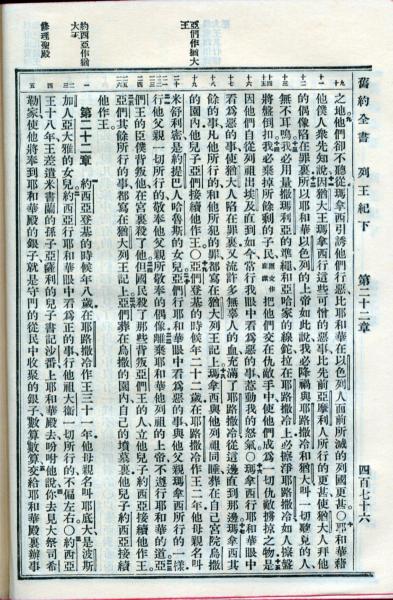 舊約全書 列王紀下 第二十二章 四百七十六
亞們作猶大
王
約西亞作猶
大王
修理聖殿
之地他們卻不聽從瑪拿西引誘他們行惡比耶和華在以色列人面前所滅的列國更甚○耶和華藉
他僕人衆先知說因猶大王瑪拿西行這些可憎的惡事比先前亞摩利人所行的更甚使猶大人拜他
的偶像陷在罪裏所以耶和華以色列的上帝如此說我必降禍與耶路撒冷和猶大叫一切聽見的人
無不耳鳴我必用量撒瑪利亞的準繩和亞哈家的線鉈拉在耶路撒冷上必擦淨耶路撒冷如人擦盤
將盤倒扣我必棄掉所餘剩的子民 把他們交在仇敵手中使他們成爲一切仇敵擄掠之物是
因他們自從列祖出埃及直到如今常行我眼中看爲惡的事惹動我的怒氣○瑪拿西行耶和華眼中
看爲惡的事使猶大人陷在罪裏又流許多無辜人的血充滿了耶路撒冷從這邊直到那邊瑪拿西其
餘的事凡他所行的和他所犯的罪都寫在猶大列王記上瑪拿西與他列祖同睡葬在自己宮院烏撒
的園內他兒子亞們接續他作王○亞們登基的時候年二十二歲在耶路撒冷作王二年他母親名叫
米舒利密是約提巴人哈魯斯的女兒亞們行耶和華眼中看爲惡的事與他父親瑪拿西所行的一樣
行他父親一切所行的敬奉他父親所敬奉的偶像離棄耶和華他列祖的上帝不遵行耶和華的道亞
們王的臣僕背叛他在宮裏殺了他但國民殺了那些背叛亞們王的人立他兒子約西亞接續他作王
亞們其餘所行的事都寫在猶大列王記上亞們葬在烏撒的園內自己的墳墓裏他兒子約西亞接續
他作王
第二十二章 約西亞登基的時候年八歲在耶路撒冷作王三十一年他母親名叫耶底大是波斯
加人亞大雅的女兒約西亞行耶和華眼中看爲正的事行他祖大衛一切所行的不偏左右○約西亞
王十八年王差遣米書蘭的孫子亞薩利的兒子書記沙番上耶和華殿去吩咐他說你去見大祭司希
勒家使他將奉到耶和華殿的銀子就是守門的從民中收聚的銀子數算數算交給耶和華殿裏辦事